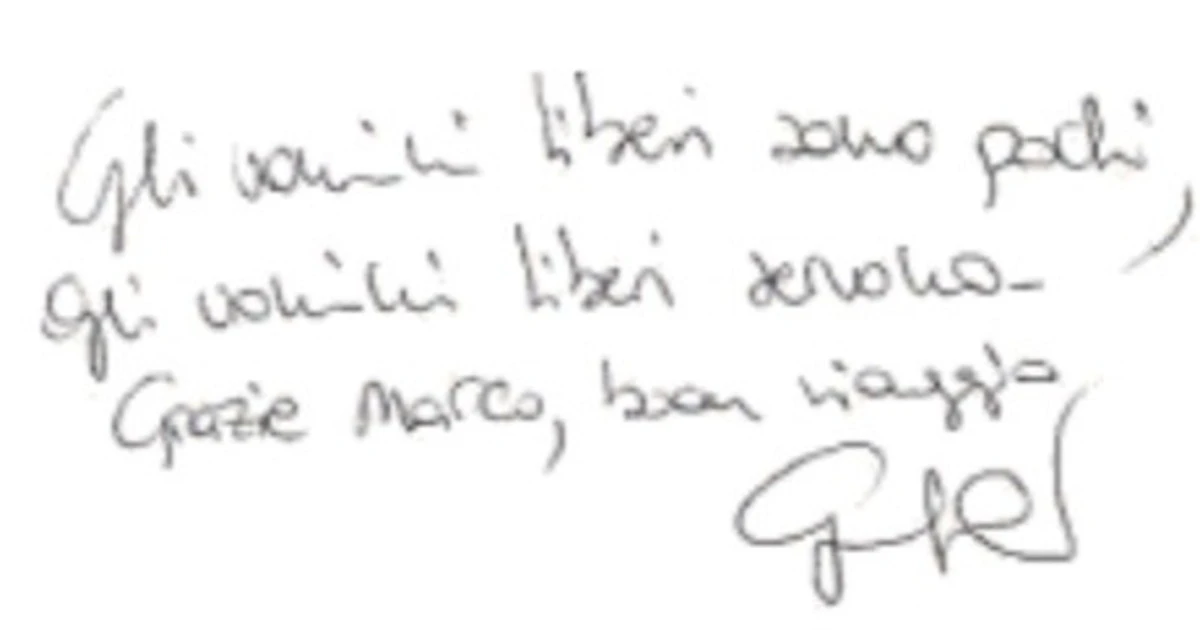 Gli uomini liberi sono pochi,
gli uomini liberi servono-
Grazie Marco, buon viaggio